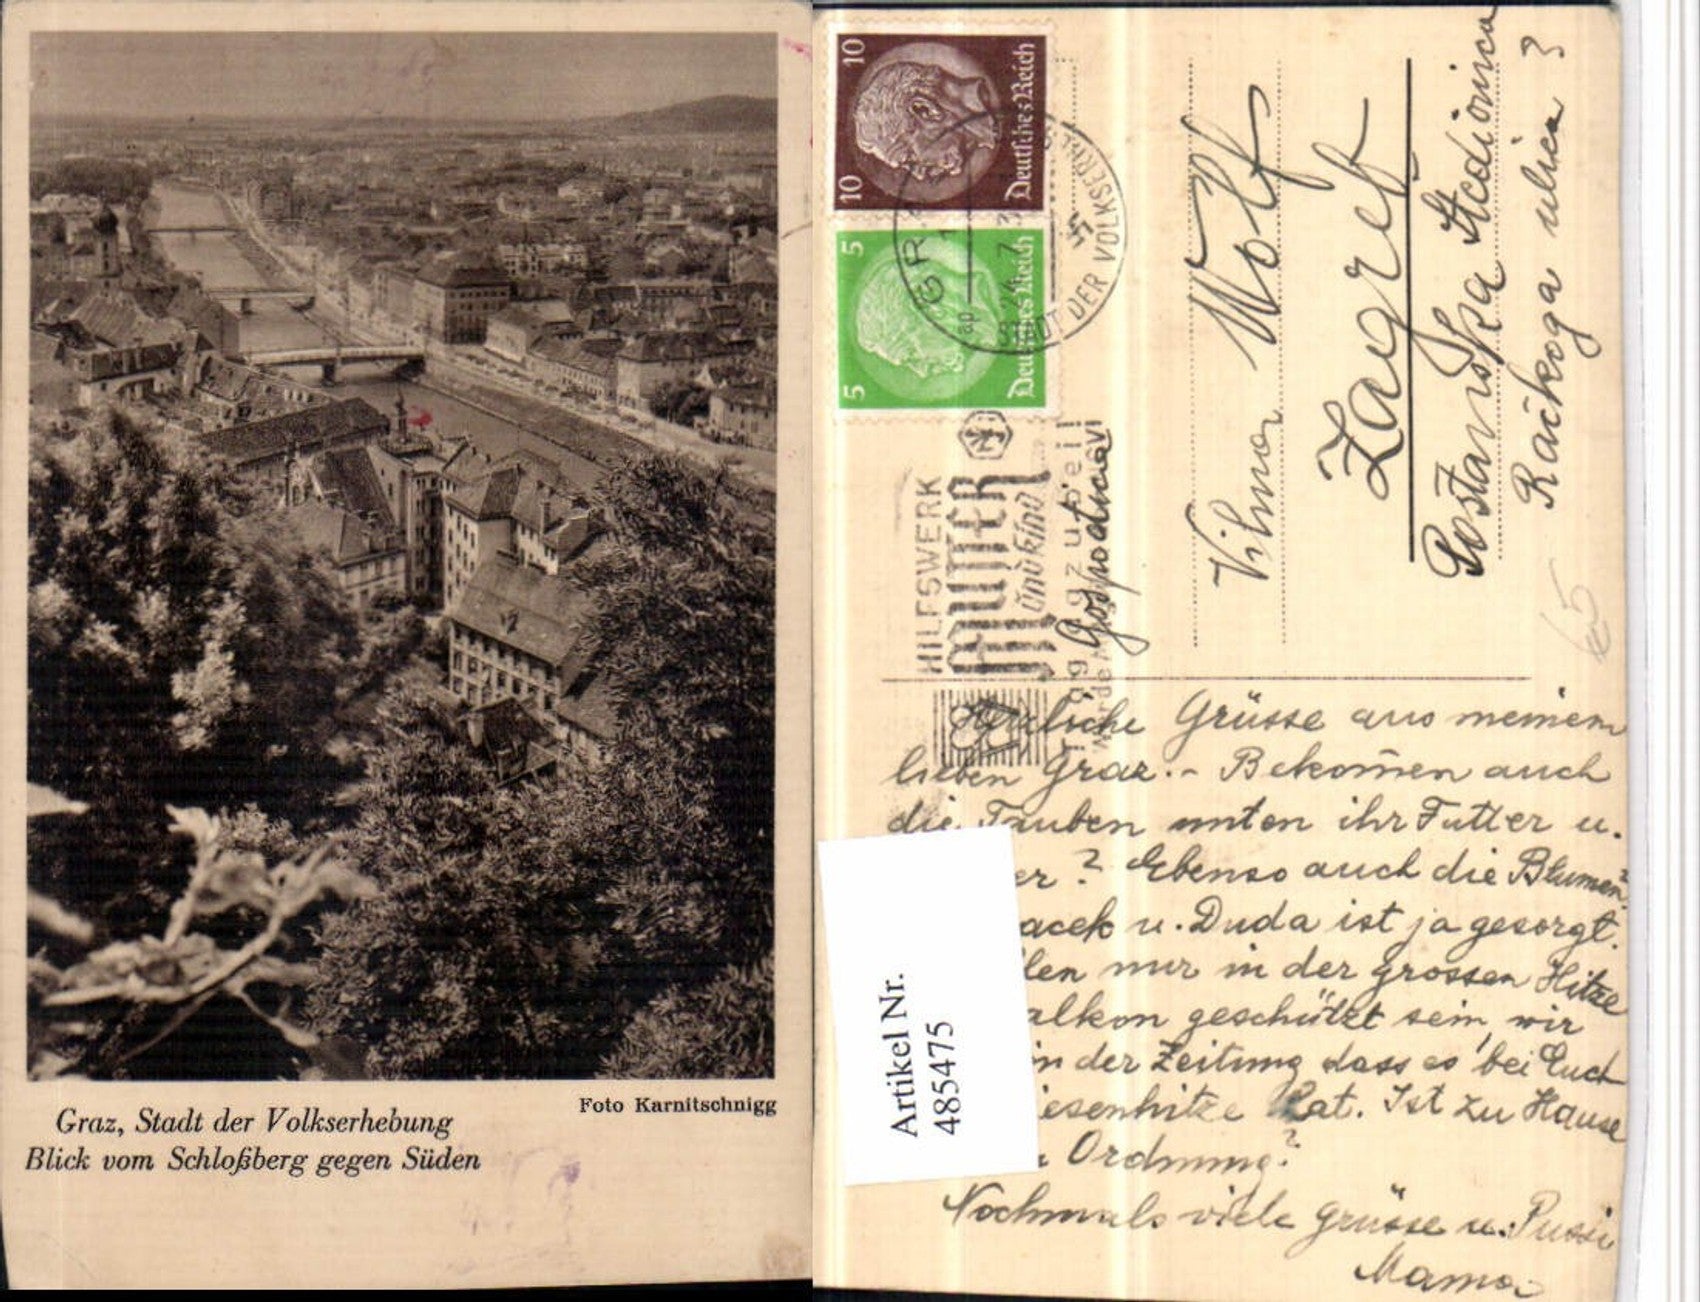 Graz, Stadt der Volkserhebung
Blick vom Schloßberg gegen Süden
Foto Karnitschnigg
10 10
Deutsches Reich
5 5
Deutsches Reich
DER VOLKSERH
HILFSWERK
MUTTER
und Kind
Gospodinu
Vilmor Wolf
Zagreb
Postanska Stedionica
Račkoga ulica 3
65
Herzliche Grüsse aus meinem
lieben Graz.- Bekom̄en auch
die Tauben unten ihr Futter u.
er? Ebenso auch die Blumen?
acek u. Duda ist ja gesorgt.
len nur in der grossen Hitze
alkon geschützt sein, wir
in der Zeitung dass es bei Euch
iesenhitze hat. Ist zu Hause
Ordnung?
Nochmals viele Grüsse u. Pussi
Mama
Artikel Nr.
485475